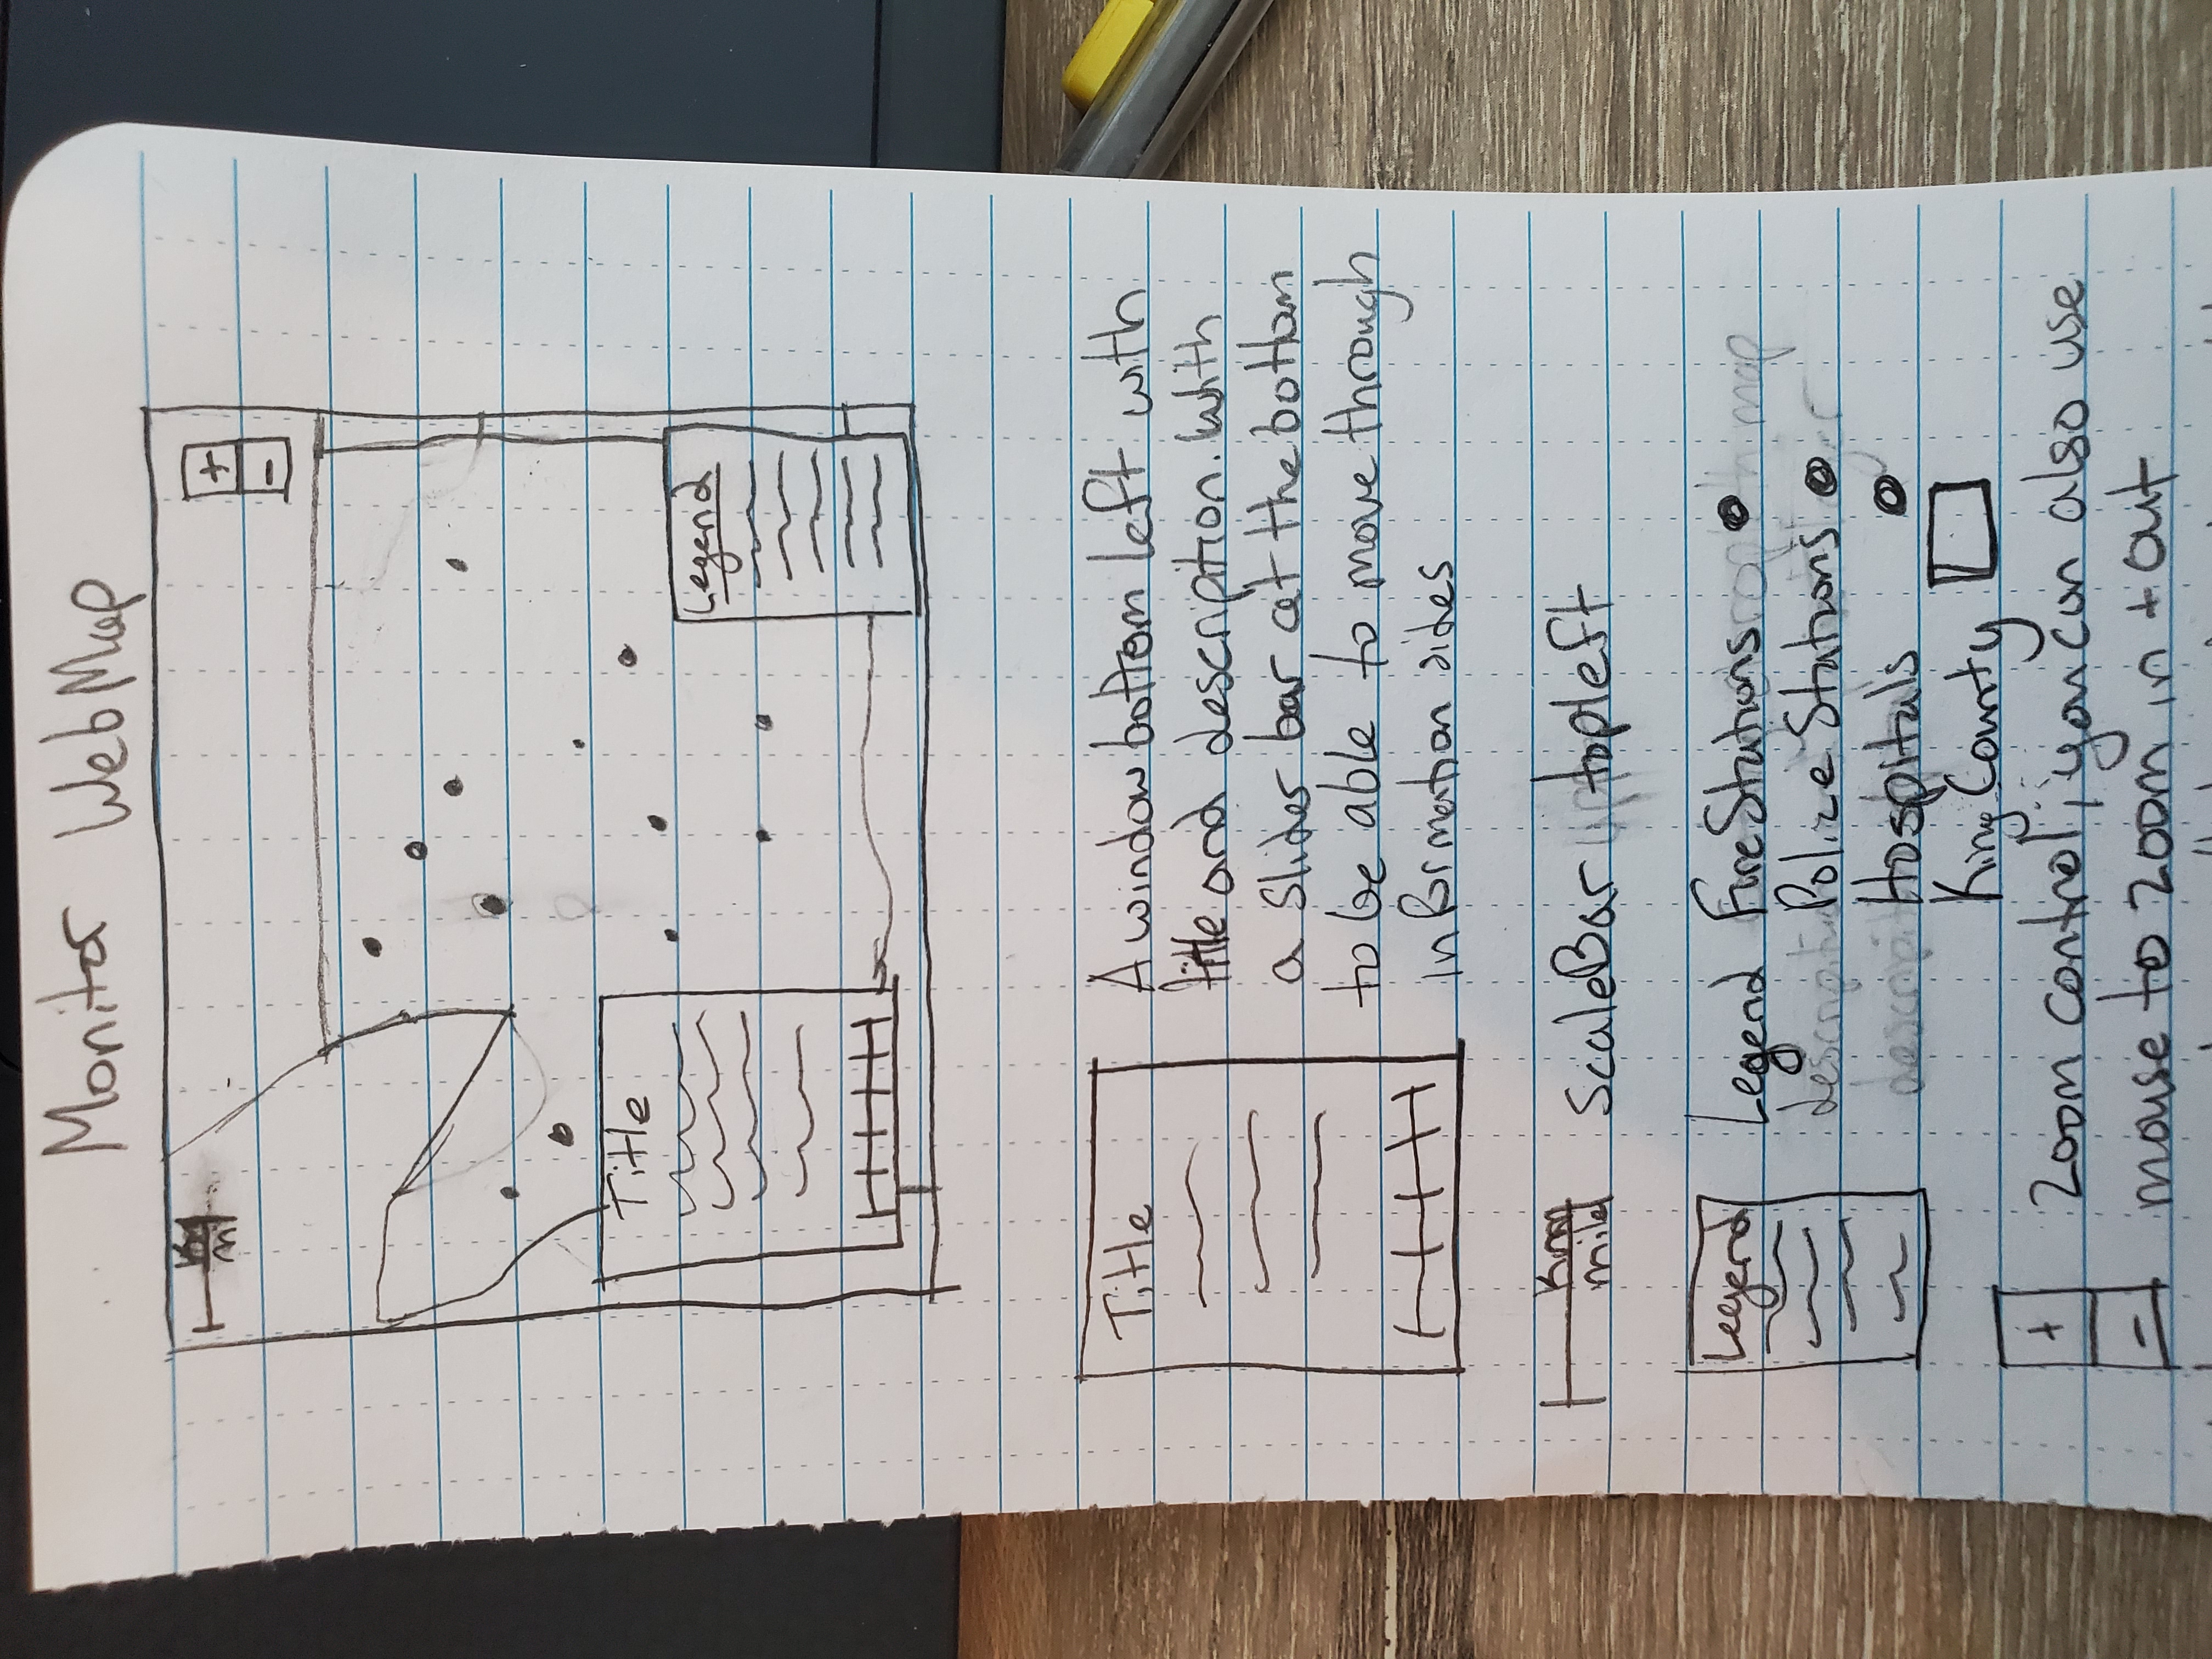 Monitor WebMap
Km
mi
+
-
Title
Legend
Title
A window bottom left with
title and description. With
a slider bar at the bottom
to be able to move through
information sides
Km
mile
ScaleBar topleft
Legend
Legend Fire Stations
Police Stations
Hospitals
King County
+
-
Zoom control, you can also use
mouse to zoom in + out